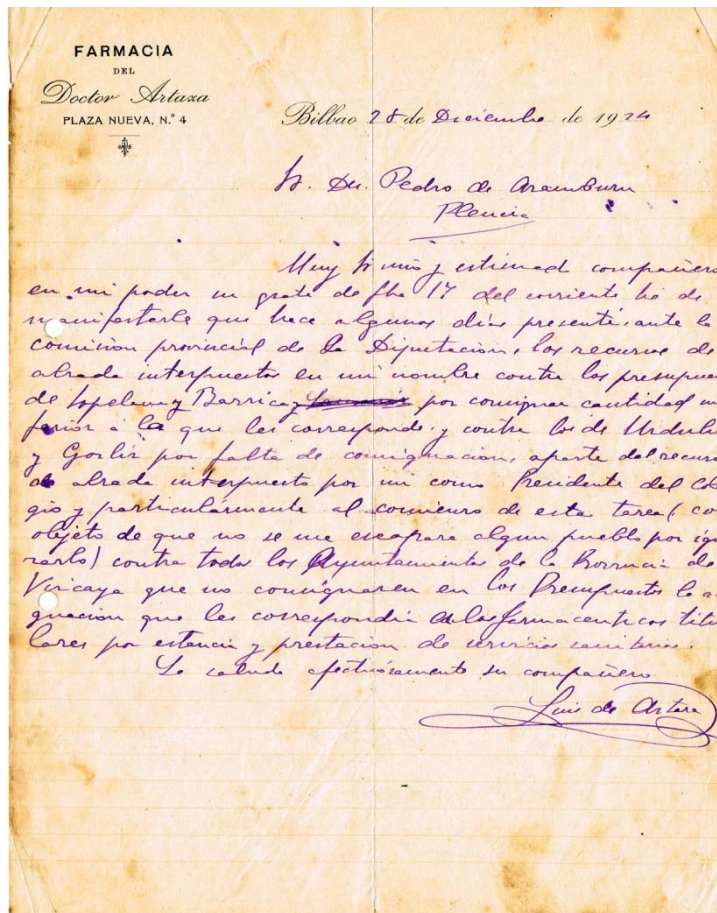 FARMACIA
DEL
Doctor Artaza
PLAZA NUEVA, N.° 4
Bilbao 28 de Diciembre de 1924
Sr. Dn. Pedro de Aramburu
Plencia
Muy Sr mio y estimado compañero
en mi poder su grata de fha 17 del corriente he de
manifestarle que hace algunos dias presenté, ante la
comision provincial de la Diputacion, los recursos de
alzada interpuestos en mi nombre contra los presupue
de Sopelana y Barrica y por consignar cantidad in
ferior a la que les corresponde, y contra los de Urduliz
y Gorliz por falta de consignacion, aparte del recurso
de alzada interpuesto por mi como Presidente del Cole
gio y particularmente al comienzo de esta tarea (con
objeto de que no se me escapara algun pueblo por igno
rarlo) contra todos los Ayuntamientos de la Provincia de
Vizcaya que no consignaren en los Presupuestos la asi
gnacion que les correspondia a los farmaceuticos titu
lares por estancia y prestacion de servicios sanitarios.
Le saluda afectuosamente su compañero
Luis de Artaza